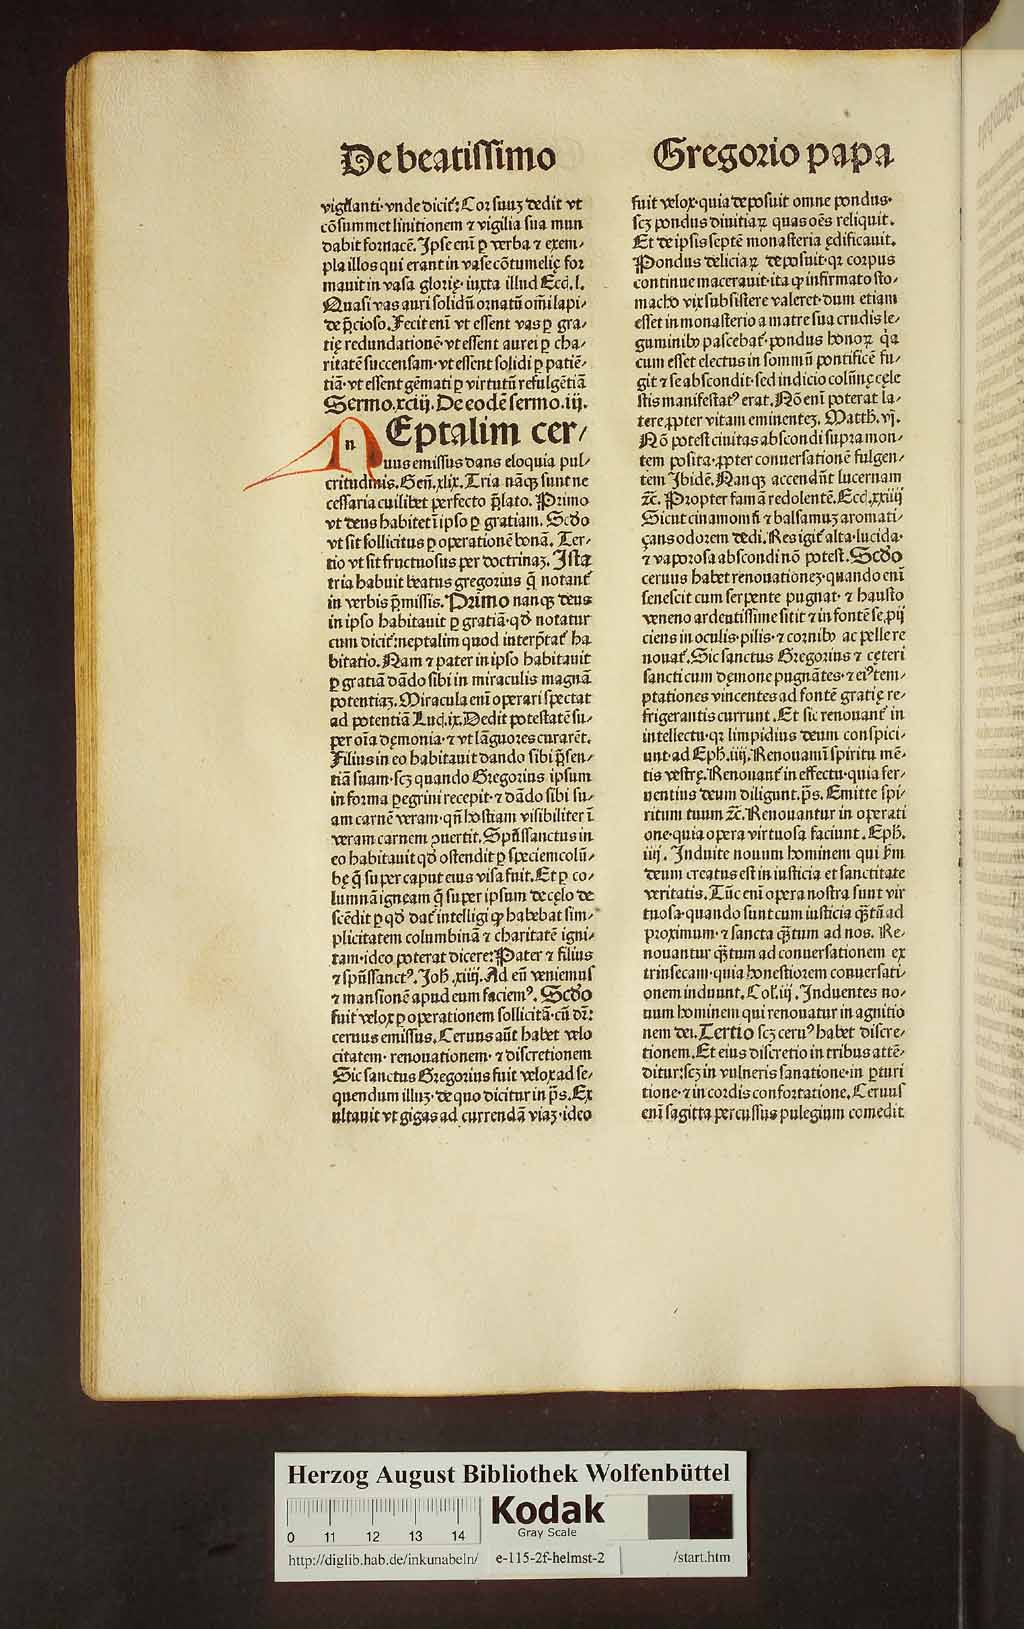 De beatissimo
vigilanti·vnde dicit᷑: Cor suuꝫ dedit vt
cōsummet linitionem ⁊ vigilia sua mun
dabit fornacē. Ipse eni̅ ꝑ verba ⁊ exem⸗
pla illos qui erant in vase cōtumelię for
mauit in vasa glorię· iuxta illud Eccͥ. l.
Quasi vas auri solidū ornatū omni lapi⸗
de p̄cioso. Fecit eni̅ vt essent vas ꝑ gra⸗
tię redundationē· vt essent aurei ꝑ cha⸗
ritatē succensam· vt essent solidi ꝑ patiē⸗
tiā· vt essent gēmati ꝑ virtutū refulgētiā
Sermo.xciij. De eodē sermo.iij.
n Eptalim cer⸗
uus emissus dans eloquia pul⸗
critudinis. Geń.xlix. Tria nāqꝫ sunt ne
cessaria cuilibet perfecto p̄lato. Primo
vt deus habitet ī ipso ꝑ gratiam. Scdo
vt sit sollicitus ꝑ operationē bonā. Ter⸗
tio vt sit fructuosus per doctrinaꝫ. Ista
tria habuit beatus gregorius q̄ notant᷑
in verbis p̄missis. Primo nanqꝫ deus
in ipso habitauit ꝑ gratiā· qď notatur
cum dicit᷑: neptalim quod interp̄tat᷑ ha
bitatio. Nam ⁊ pater in ipso habitauit
ꝑ gratiā dādo sibi in miraculis magnā
potentiaꝫ. Miracula eni̅ operari spectat
ad potentiā Luc̄.ix. Dedit potestatē su⸗
per oīa dęmonia· ⁊ vt lāguores curarēt.
Filius in eo habitauit dando sibi p̄sen⸗
tiā suam·scꝫ quando Gregorius ipsum
in forma ꝑegrini recepit· ⁊ dādo sibi su⸗
am carnē veram·qn̄ hostiam visibiliter ī
veram carnem ꝯuertit. Sp̄ussanctus in
eo habitauit qď ostendit ꝑ speciem colū⸗
bę q̄ super caput eius visa fuit. Et ꝑ co⸗
lumnā igneam q̄ super ipsum de cęlo de
scēdit ꝑ qď dat᷑ intelligi ꝙ habebat sim⸗
plicitatem columbinā ⁊ charitatē igni⸗
tam·ideo poterat dicere: Pater ⁊ filius
⁊ sp̄ussanctꝰ. Joh̄.xiiij. Ad eū veniemus
⁊ mansionē apud eum faciemꝰ. Scdo
fuit velox ꝑ operationem sollicitā·cū dr̄:
ceruus emissus. Ceruus aūt habet velo
citatem· renouationem· ⁊ discretionem
Sic sanctus Gregorius fuit velox ad se⸗
quendum illuꝫ·de quo dicitur in p̄s. Ex
ultauit vt gigas ad currendā viaꝫ·ideo
Gregorio papa
fuit velox·quia deposuit omne pondus·
scꝫ pondus diuitiaꝝ quas oēs reliquit.
Et de ipsis septē monasteria ędificauit.
Pondus deliciaꝝ deposuit·qꝛ corpus
continue macerauit·ita ꝙ infirmato sto⸗
macho vix subsistere valeret·dum etiam
esset in monasterio a matre sua crudis le⸗
guminibꝰ pascebat᷑·pondus honoꝝ q̇a
cum esset electus in sommū pontificē fu⸗
git ⁊ se abscondit·sed indicio colūnę cęle
stis manifestatꝰ erat. Nō eni̅ poterat la⸗
tere ꝓpter vitam eminenteꝫ. Matth̄. vj.
Nō potest ciuitas abscondi supra mon⸗
tem posita·ꝓpter conuersationē fulgen⸗
tem Ibidē. Nanqꝫ accendūt lucernam
ꝛc̄. Propter famā redolentē. Eccͥ.xxiiij
Sicut cinamomū ⁊ balsamuꝫ aromati⸗
çans odorem dedi. Res igit᷑ alta·lucida·
⁊ vaporosa abscondi nō potest. Scdo
ceruus habet renouationeꝫ·quando eni̅
senescit cum serpente pugnat· ⁊ hausto
veneno ardentissime sitit ⁊ in fontē se ꝓij
ciens in oculis·pilis·⁊ cornibꝰ ac pelle re
nouat᷑. Sic sanctus Gregorius ⁊ cęteri
sancti cum dęmone pugnātes·⁊ eiꝰ tem⸗
ptationes vincentes ad fontē gratię re⸗
frigerantis currunt. Et sic renouant᷑ in
intellectu·qꝛ limpidius deum conspici⸗
unt·ad Eph̄.iiij. Renouamī spiritu mē⸗
tis vestrę. Renouant᷑ in effectu·quia fer⸗
uentius deum diligunt. p̄s. Emitte spi⸗
ritum tuum ꝛc̄. Renouantur in operati
one·quia opera virtuosa faciunt. Eph̄.
iiij. Induite nouum hominem qui ẜm
deum creatus est in iusticia et sanctitate
veritatis. Tūc eni̅ opera nostra sunt vir
tuosa·quando sunt cum iusticia q̄tū ad
proximum· ⁊ sancta q̄tum ad nos. Re⸗
nouantur q̄tum ad conuersationem ex
trinsecam·quia honestiorem conuersati⸗
onem induunt. Col̄.iij. Induentes no⸗
uum hominem qui renouatur in agnitio
nem dei. Tertio scꝫ ceruꝰ habet discre⸗
tionem. Et eius discretio in tribus attē⸗
ditur:scꝫ in vulneris sanatione·in ꝑturi
tione·⁊ in cordis confortatione. Ceruus
eni̅ sagitta percussus pulegium comedit
Herzog August Bibliothek Wolfenbüttel
Kodak
Gray Scale
0 11 12 13 14
http://diglib.hab.de/inkunabeln/ e-115-2f-helmst-2 /start.htm